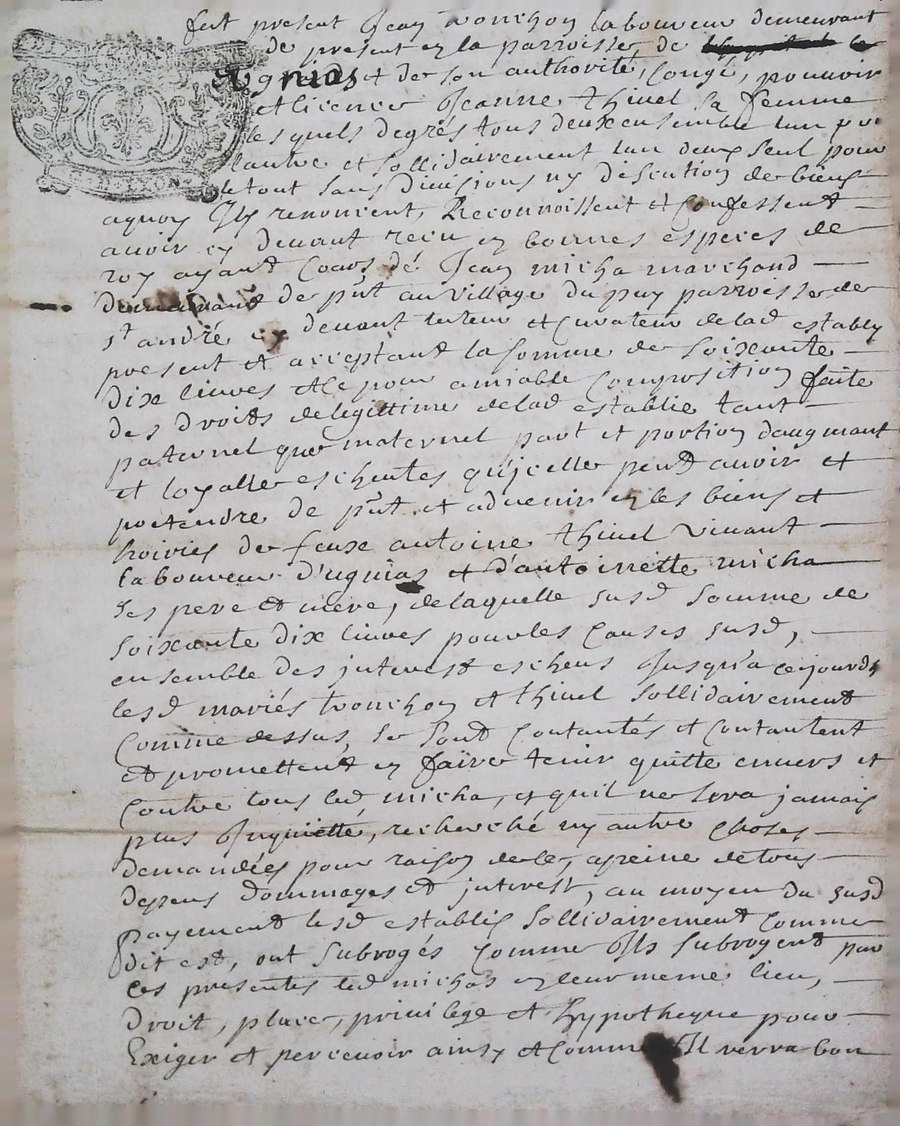 fut present Jean tronchon laboureur demeurant
de present en la parroisse, de le
Ugnias et de son authorité, Congé, pouvoir
et licence Jeanne thivel sa femme
lesquels degrés tous deux ensemble lun po
lautre et sollidairement lun deux seul pour
le tout sans divisions ny discution de biens
aquoy Ils renoncent, Reconnoissent et Confessent
avoir cy devant receu en bonnes especes de
roy ayant Cours de Jean micha marchand
demeurant de pnt au village du puy parroisse de
st andré cy devant tuteur et curateur de lad establie
present et acceptant la somme de soixante
dix livres et ce pour amiable Composition faite
des droits de legittime de lad establie tant
paternel que maternel part et portion daugmant
et loyalle escheutes qu'jcelle peut avoir et
pretendre de pnt et advenir en les biens et
hoiries de feux antoine thivel vivant
laboureur d'ugnias et d'antoinette micha
ses pere et mere, de laquelle susd somme de
soixante dix livres pour les Causes susd,
ensemble des jnterest escheus Jusqu'a cejourdh
lesd mariés tronchon et thivel sollidairement
Comme dessus, se sont Contantés et Contantent
et promettent en faire tenir quitte envers et
Contre tous led micha, et quil ne sera jamais
plus Jnquietté, recherché ny autre Choses
demandées pour raison de ce, apeine de tous
depens dommages et jnterest, au moyen du susd
payement lesd establis sollidairement Comme
dit est, ont subrogés Comme Ils subrogent par
ces presentes led micha en leur meme lieu,
droit, place, privilege et hypotheque pour
Exiger et percevoir ainsy et Comme Il verra bon